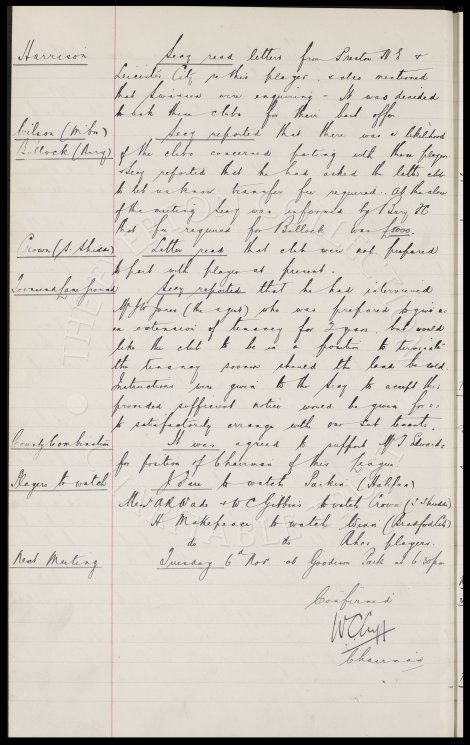 Harrison Secy read letters from Preston N E &
Leicester City re this player, & also mentioned
that Swansea were enquiring - It was decided
to ask these clubs for their best offer
Wilson (M'bro) Secy reported that there was a likelihood
Bullock (Bury) of the clubs concerned parting with these players
& Secy reported that he had asked the latter club
to let us know transfer fee required. At the close
of the meeting Secy was informed by Bury FC
that fee required for Bullock was £5000.
Crown (S. Shields) Letter read that club were not prepared
to part with player at present.
Lane Ground Secy reported that he had interviewed
Mr Jones (the agent) who was prepared to give us
an extension of tenancy for 2 years, but would
like the club to be in a position to terminate
the tenancy sooner should the land be sold.
Instructions were given to the Secy to accept this
provided sufficient notice would be given for us
to satisfactorily arrange with our sub tenants.
County Combination It was agreed to support Mr T Edwards
for position of Chairman of this League.
Players to watch J Pare to watch Parkin (Halifax)
Mess A R Wade & W C Gibbins to watch Crown (S Shields)
H Makepeace to watch (Bradford City)
do do players.
Next Meeting Tuesday 6th Nov at Goodison Park at 6.30pm
Confirmed
W C Cuff
Chairman